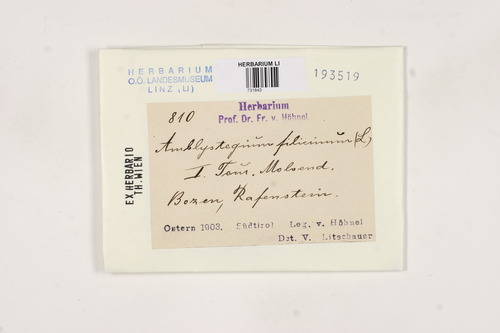 HERBARIUM
O.Ö. LANDESMUSEUM
LINZ (LI)
HERBARIUM LI
731843
193519
EX HERBARIO
TH. WIEN
Herbarium
Prof. Dr. Fr. v. Höhnel.
810
Amblystegium filicinum (L.)
Bozen, Rafenstein.
Ostern 1903. Südtirol Leg. v. Höhnel
Det. V. Litschauer